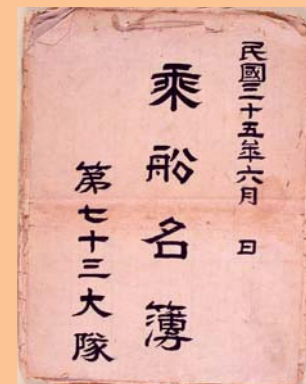 民國三十五年六月　日
乘船名簿
第七十三大隊